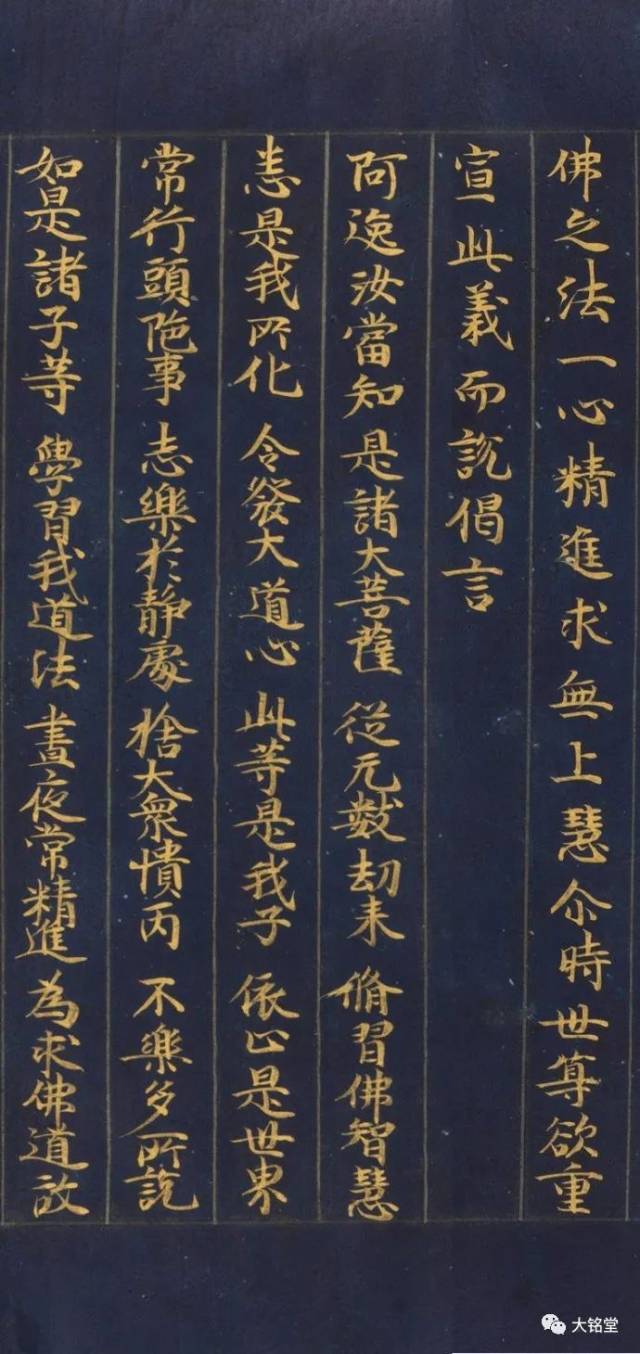 佛之法一心精進求無上慧尒時世尊欲重
宣此義而說偈言
阿逸汝當知 是諸大菩薩 從无數劫来 脩習佛智慧
悉是我所化 令發大道心 此等是我子 依止是世界
常行頭陁事 志樂於静處 捨大衆憒丙 不樂多所說
如是諸子等 學習我道法 晝夜常精進 為求佛道故
大铭堂